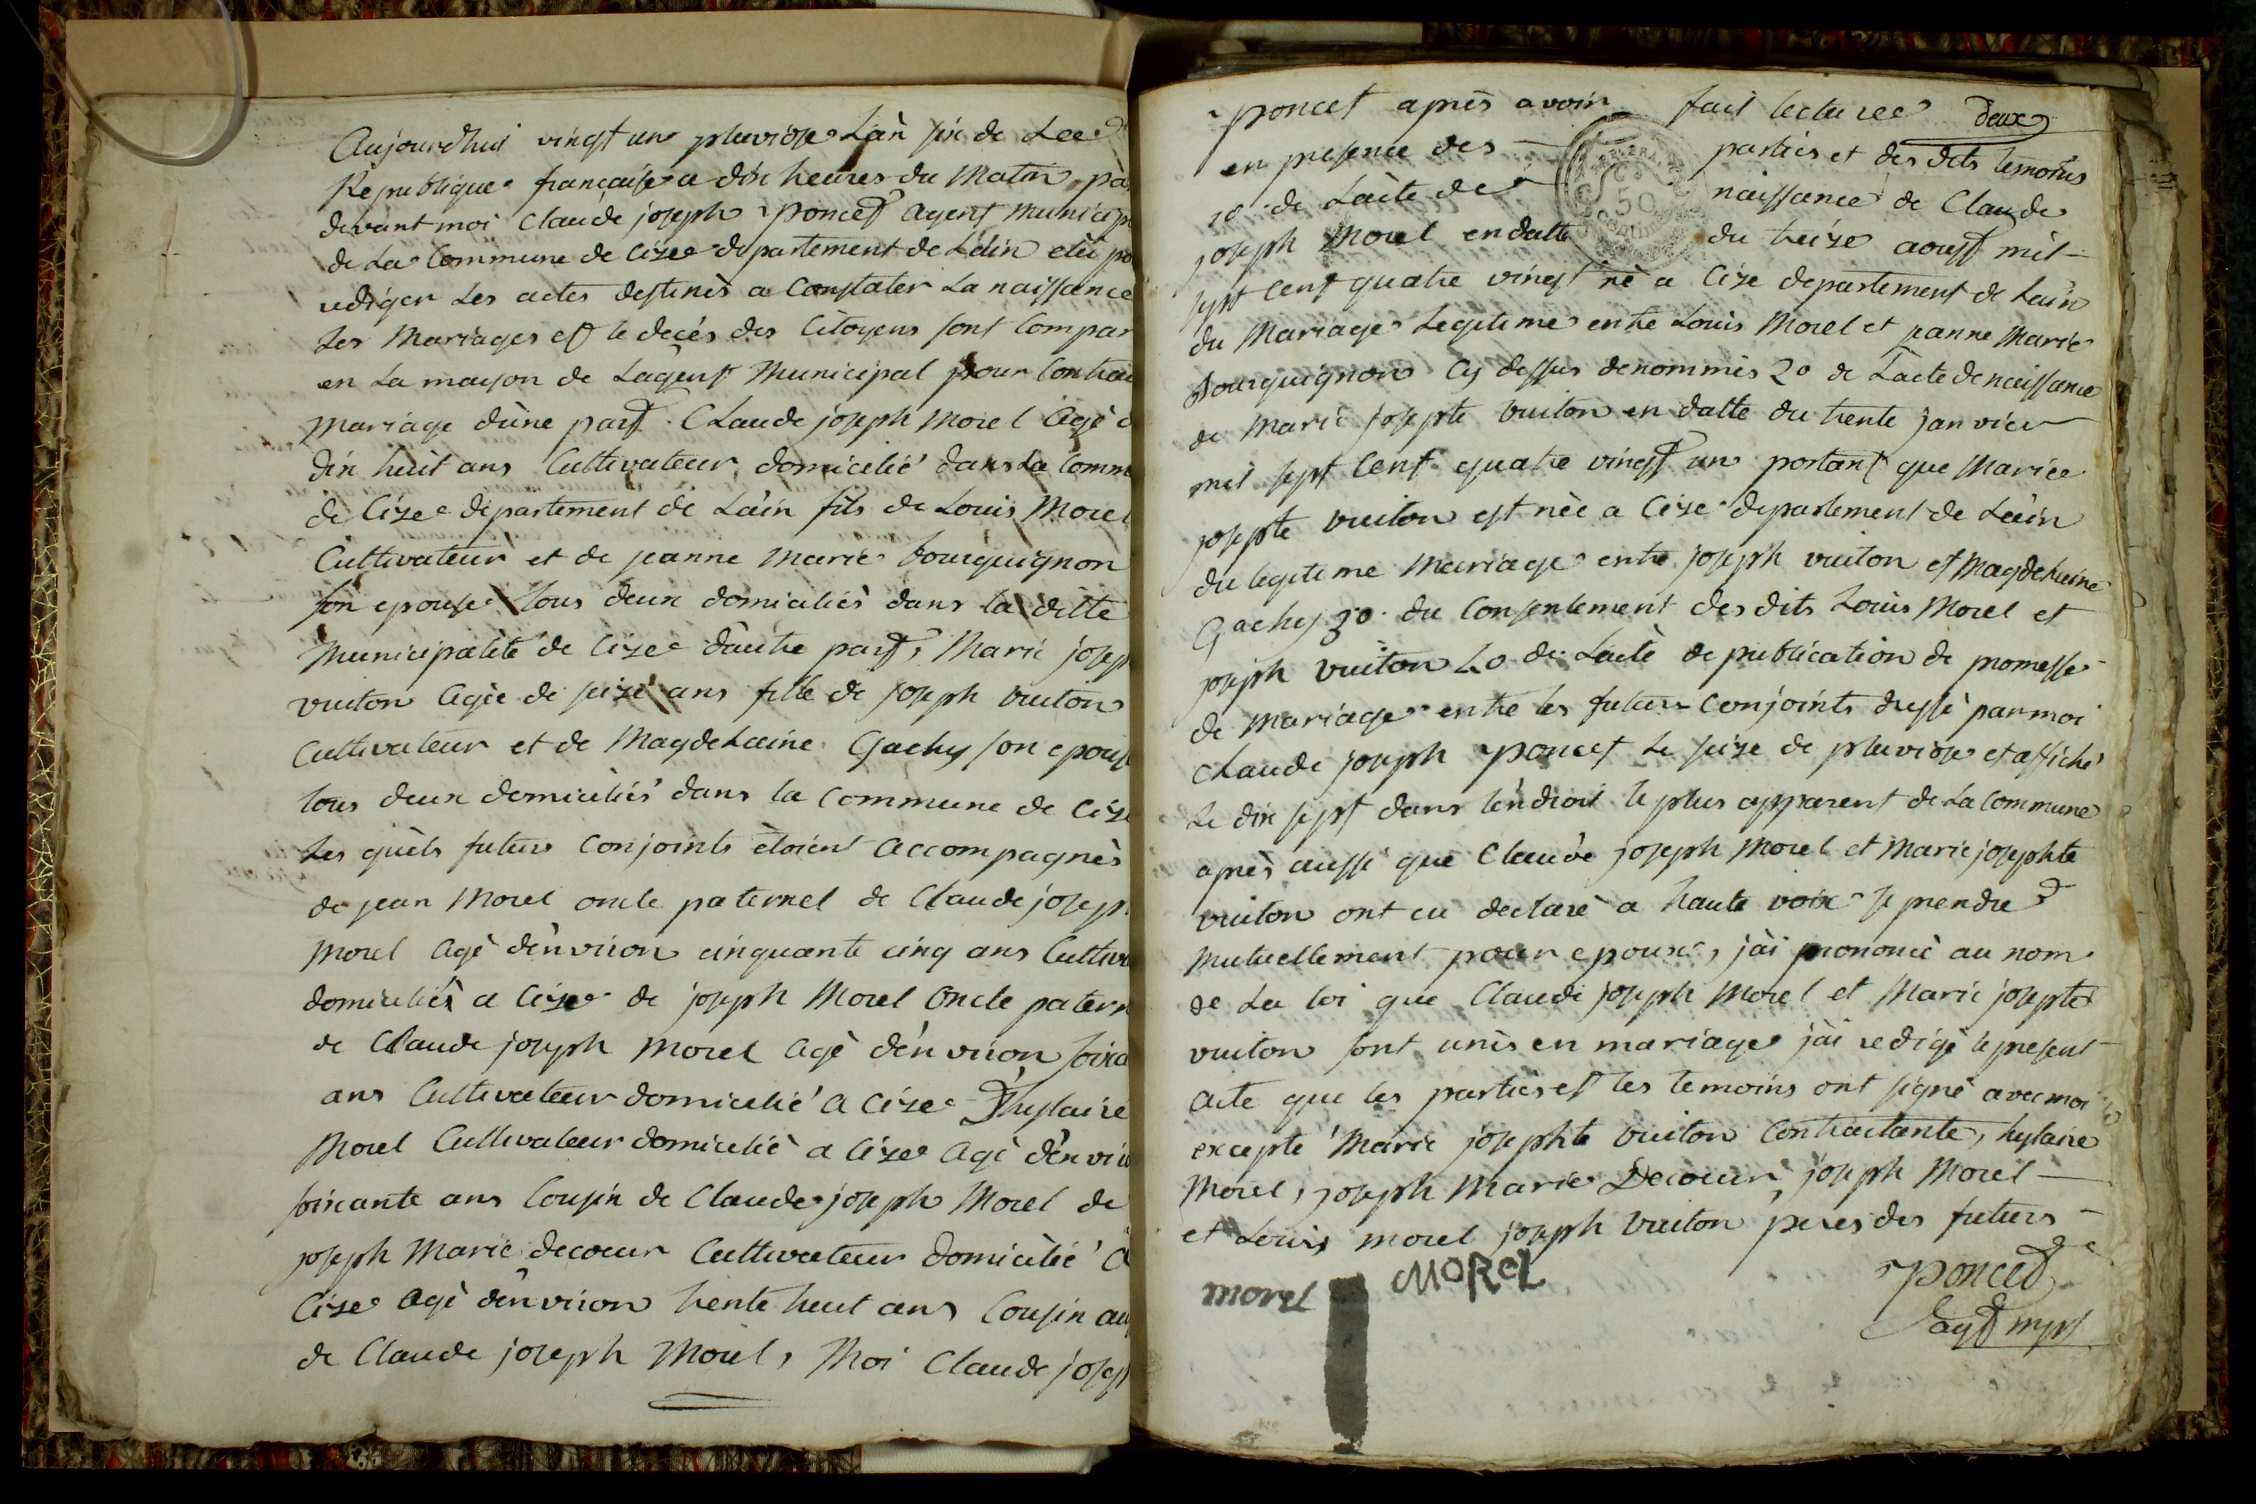 Aujourdhui vingt un pluviose Làn six de Lee
Republique française a dix heures du Matin pà
devant moi Claude joseph poncet agent Municip
de La Commune de Cize departement de Làin elù po
rediger Les actes destinès a Constater La naissance
Les Mariages et le decés des Citoyens sont Compar
en La mayson de Lagent Municipal pour Contrac
Mariage dùne part. Claude joseph Morel Agè d
dix huit ans Cultivateur domicilié dans La Comm
de Cize departement de Làin fils de Louis Morel
Cultivateur et de jeanne Marie bourguignon
son epouse tous deux domiciliés dans la ditte
Municipalité de Cize dàutre part, Marie josep
vuiton Agée de seize ans fille de joseph vuiton
Cultivateur et de MagdeLaine Gachy son epouse
tous deux domiciliés dans la Commune de Cize
Les quèls futurs Conjoints ètoient accompagnès
de jean Morel oncle paternel de Claude josep
Morel Agè dènviron cinquante cinq ans Cultiva
domiciliès a Cize de joseph Morel Oncle patern
de Claude joseph Morel Agè dènviron soixa
ans Cultivateur domicilié a Cize Dhylaire
Morel Cultivateur domicilié a Cize Agè dènviro
soixante ans Cousin de Claude joseph Morel de
joseph Marie decoeur Cultivateur domicilié a
Cize Agè dènviron trente huit ans Cousin au
de Claude joseph Morel, Moi Claude josep
poncet après avoir fait lecturee deux
en presence des parties et des dits temoins
10 de Làcte de naissance de Claude
joseph Morel en datte du treize aoust mil
sept Cent quatre vingt nè a Cize departement de Làin
du Mariage Legitime entre Louis Morel et jeanne Marie
Bourguignon Cy dessus denommés 20 de Lacte de naissance
de Marie josepte vuiton en datte du trente janvier
mil sept Cent quatre vingt un portant que Mariee
josepte vuiton est nèe a Cize departement de Làin
du legitime Mariage entre joseph vuiton et MagdeLaine
Gachy 30 du Consentement des dits Louis Morel et
joseph vuiton 40 de Làcte de publication de promesse
de Mariage entre les futurs Conjoints dressé par moi
Claude joseph poncet Le seize de pluviose et affiché
Le dix sept dans lèndroit le plus apparent de La Commune
après aussi que Claude joseph Morel et Marie josephte
vuiton ont eu declaré a haute voix se prendre
Mutuellement pour epoux, jài prononcé au nom
de La loi que Claude joseph Morel et Marie josepte
vuiton sont unis en mariage jài redigé le present
acte que les parties et les temoins ont signè avec moi
excepté Marie josephte vuiton Contractante, hylaire
Morel, joseph Marie Decoeur, joseph Morel
et Louis morel joseph vuiton peres des futurs
morel MOREL poncet
agt mpl